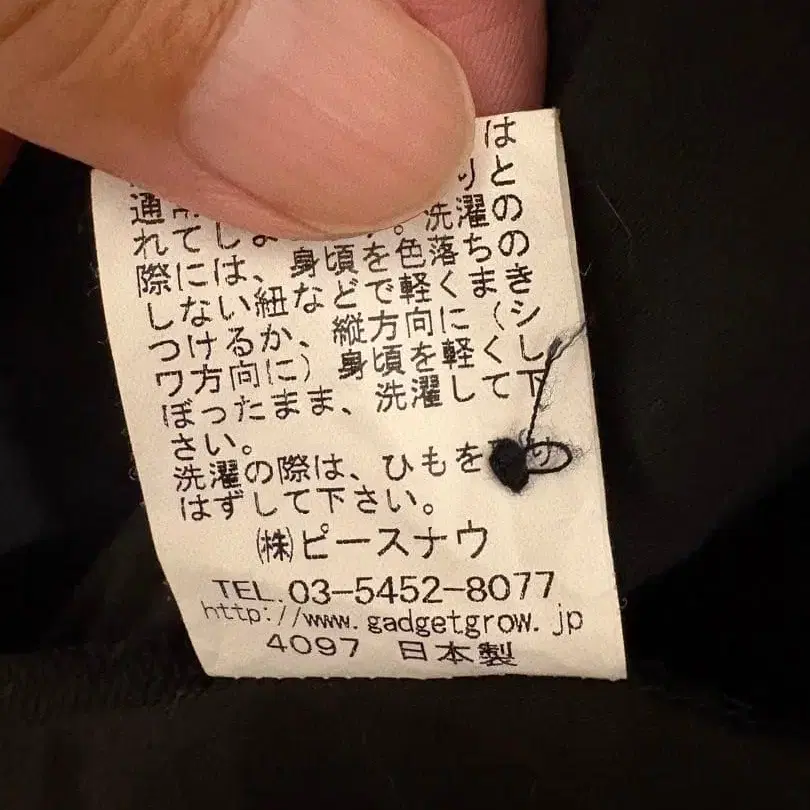 は
りと
通 。洗濯の
れてしま ちの
際には、身頃を色落き
しない紐などで軽くま
つけるか、縦方向に（シ
ワ方向に）身頃を軽くし
ぼったまま、洗濯して下
さい。
洗濯の際は、ひもを
はずして下さい。
㈱ピースナウ
TEL.03-5452-8077
http://www.gadgetgrow.jp
4097 日本製